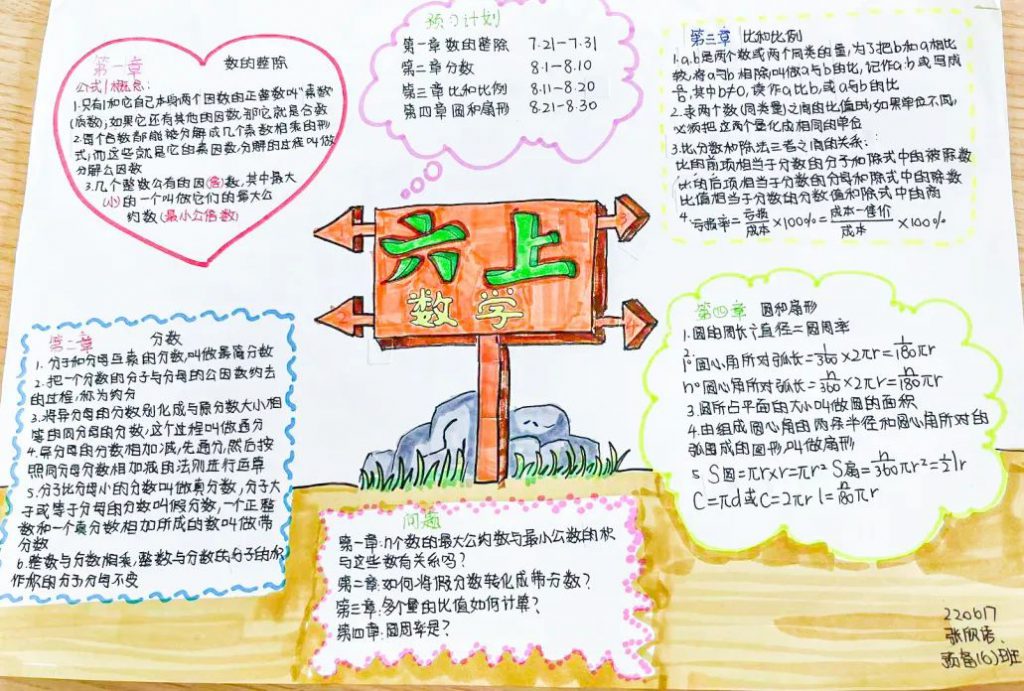 第一章 数的整除
公式/概念：
1.只有1和它自己本身两个因数的正整数叫"素数"
(质数)，如果它还有其他的因数，那它就是合数
2.每个合数都能被分解成几个素数相乘的形
式，而这些就是它的素因数，分解的过程叫做
分解么因数
3.几个整数公有的因(倍)数，其中最大
(小)的一个叫做它们的最大公
约数(最小公倍数)
预习计划
第一章 数的整除 7.21-7.31
第二章 分数 8.1-8.10
第三章 比和比例 8.11-8.20
第四章 圆和扇形 8.21-8.30
第三章 比和比例
1.a,b是两个数或两个同类的量，为了把b和a相比
较，将a与b相除叫做a与b的比，记作a:b或写成
其中b≠0，读作a比b，或a与b的比
2.求两个数(同类量)之间的比值时，如果单位不同，
必须把这两个量化成相同的单位
3.比分数和除法三者之间的关系：
比的前项相当于分数的分子和除式中的被除数
比的后项相当于分数的分母和除式中的除数
比值相当于分数的分数值和除式中的商
4.亏损率=亏损/成本×100%=成本-售价/成本×100%
六上
数学
第二章 分数
1.分子和分母互素的分数，叫做最简分数
2.把一个分数的分子与分母的公因数约去
的过程，称为约分
3.将异分母的分数别化成与原分数大小相
等的同分母的分数，这个过程叫做通分
4.异分母的分数相加减，先通分，然后按
照同分母分数相加减的法则进行运算
5.分子比分母小的分数叫做真分数，分子大
于或等于分母的分数叫做假分数，一个正整
数和一个真分数相加所成的数叫做带
分数
6.整数与分数相乘，整数与分数的分子的积
作积的分子，分母不变
第四章 圆和扇形
1.圆的周长÷直径=圆周率
2.1°圆心角所对弧长=1/360×2πr=1/180πr
n°圆心角所对弧长=n/360×2πr=n/180πr
3.圆所占平面的大小叫做圆的面积
4.由组成圆心角的两条半径和圆心角所对的
弧围成的图形，叫做扇形
5.S圆=πr×r=πr² S扇=n/360πr²=1/2lr
C=πd或C=2πr l=n/180πr
问题
第一章：n个数的最大公约数与最小公数的积
与这些数有关系吗？
第二章：如何将假分数转化成带分数？
第三章：多个量的比值如何计算？
第四章：圆周率是？
220617
张欣语、
预备(6)班